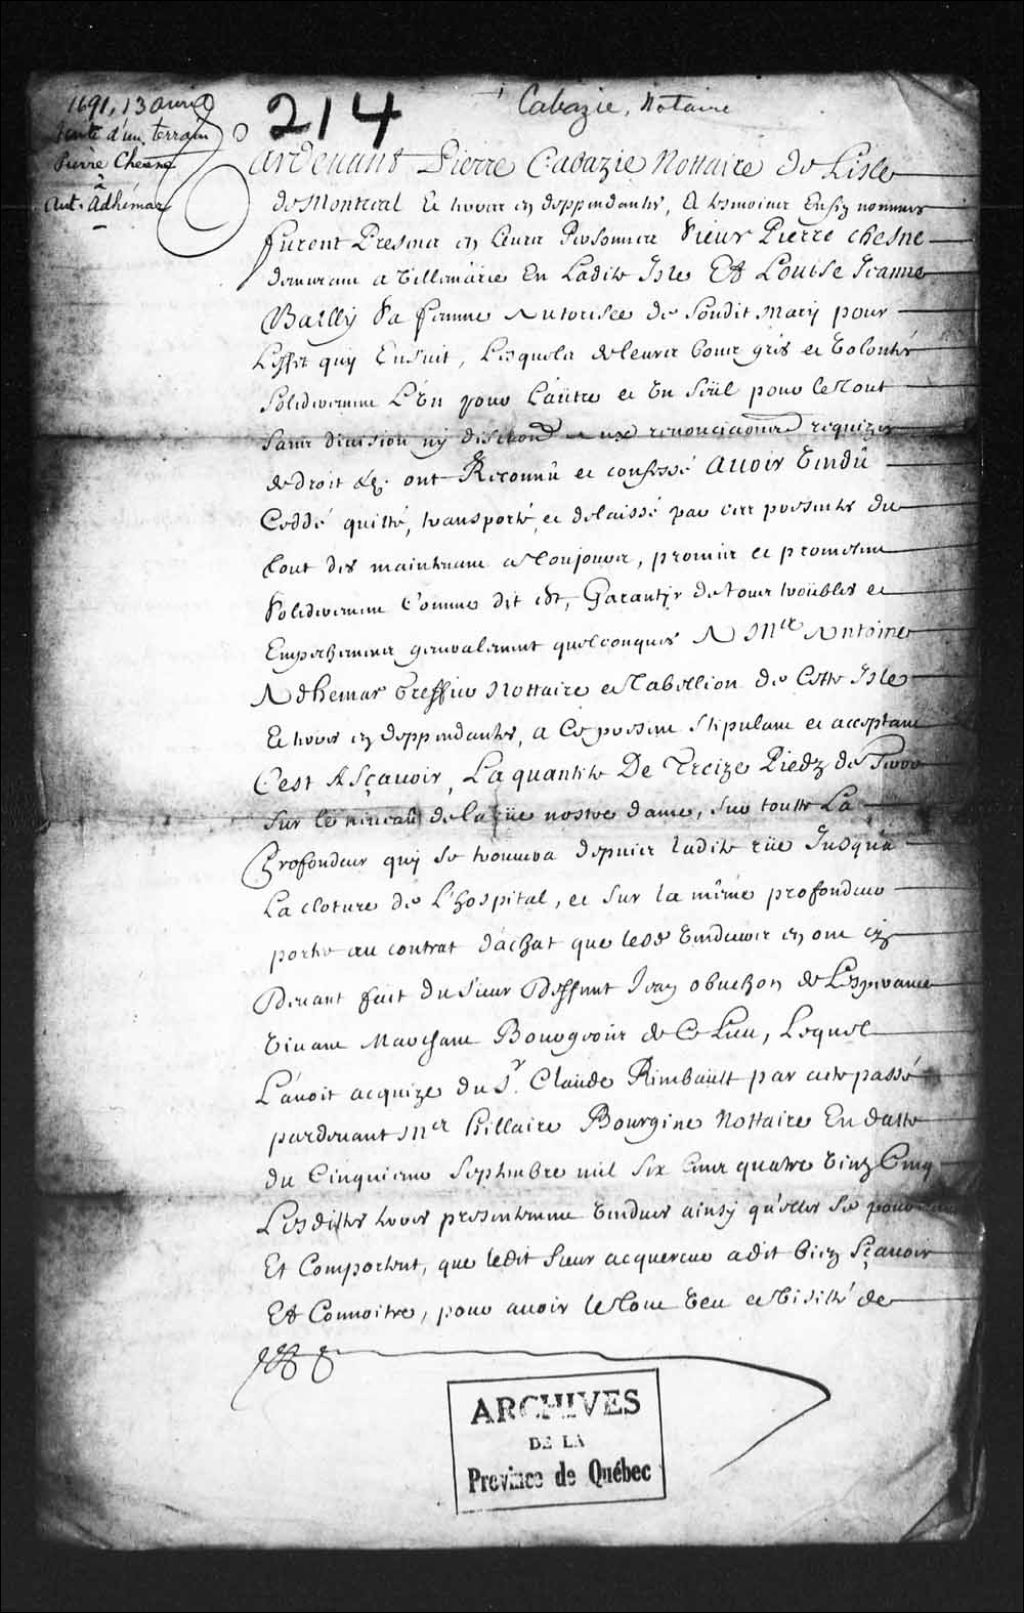 1691, 13 avril
Vente d'un terrain
Pierre Chesne
à
Ant. Adhémar
214
Cabazie, Notaire
Pardevant Pierre Cabazie Nottaire de L'isle
de Montreal et terres en deppendantes, et tesmoins Ensin nommez
furent Presens en leurs Personnes Sieur Pierre Chesne
demeurant a Villemarie En Ladite Isle Et Louise Jeanne
Bailly Sa femme Autorisée de Sondit Mary pour
L'effet quy Ensuit, Lesquels de leurs bons gréz et Volontés
Solidairement L'Un pour L'autre et Un Seül pour le Tout
Sans division ny renonciations requizes
de droit &c. ont Reconnû et confessé Avoir Vendû
Ceddé quitté, transporté, et delaissé par ces presentes du
tout dès maintenant a Toujours, promis et promettent
Solidairement Comme dit est, Garantir de tous troübles et
Empeschemens generalement quelconques A Mre Antoine
Adhemar Greffier Nottaire et Tabellion de Cette Isle
Et terres en deppendantes, a Ce present Stipulant et acceptant
C'est Asçavoir, La quantite De Treize Piedz de Terre
Sur le niveau de la rüe nostre dame, Sur toutte La
Profondeur quy Se trouvera depuis ladite rüe Jusqu'a
La cloture de L'hospital, et Sur la même profondeur
porté au contrat d'achat que lesds Vendeurs en ont cy
Devant fait du Sieur Deffunt Jean obuchon de Lesperance
Vivant Marchant Bourgeois de Ce Lieu, Lequel
L'avoit acquize du Sr. Claude Rimbault par acte passé
pardevant Mre hillaire Bourgine Nottaire En datte
du Cinquieme Septembre mil Six Cens quatre Vingt Cinq
Lesdittes terres presentement Vendues ainsy qu'elles Se
Et Comportent, que ledit Sieur acquereur a dit bien Sçavoir
Et Connoitre, pour avoir le Tout Veu et Visitté de
ARCHIVES
DE LA
Province de Québec